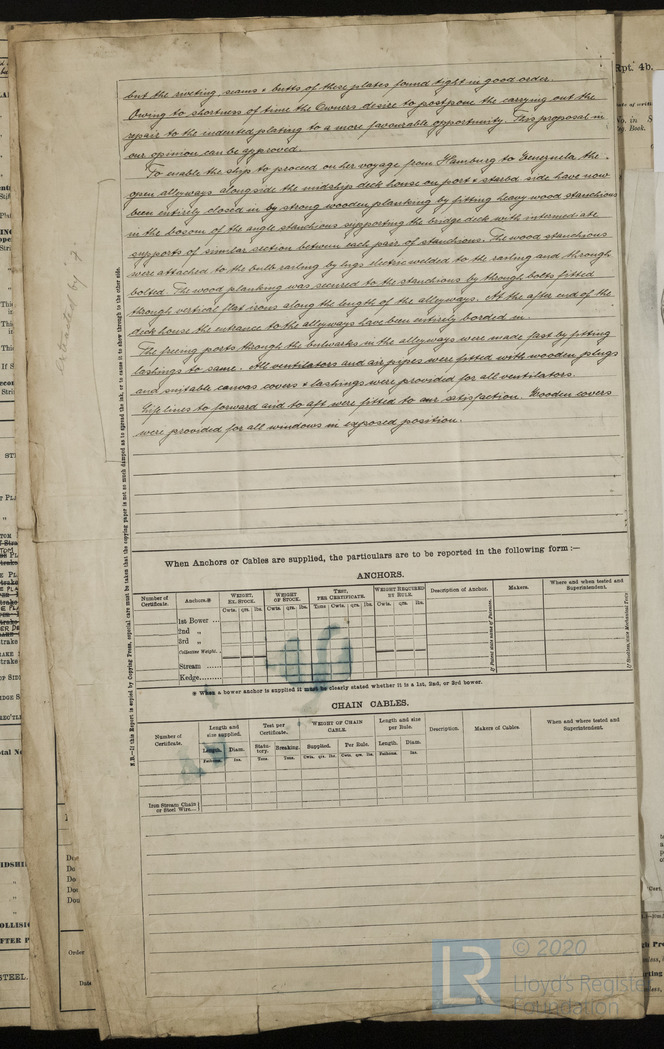 but the riveting seams & butts of these plates found tight in good order.
Owing to shortness of time the Owners desire to postpone the carrying out the
repair to the indented plating to a more favourable opportunity. This proposal in
our opinion can be approved.
To enable the ship to proceed on her voyage from Hamburg to Venezuela the
open alleyways alongside the midship deck house on port & starbd side have now
been entirely closed in by strong wooden planking by fitting heavy wood stanchions
in the bosom of the angle stanchions supporting the bridge deck with intermediate
supports of similar section between each pair of stanchions. The wood stanchions
were attached to the bulb railing by lugs electric welded to the railing and through
bolted. The wood planking was secured to the stanchions by through bolts fitted
through vertical flat irons along the length of the alleyways. At the after end of the
deck house the entrance to the alleyways have been entirely borded in.
The freeing ports through the bulwarks in the alleyways were made fast by fitting
lashings to same. All ventilators and air pipes were fitted with wooden plugs
and suitable canvas covers & lashings were provided for all ventilators.
Life lines to forward and to aft were fitted to our satisfaction. Wooden covers
were provided for all windows in exposed position.
extracted by
N.B.—If this Report is copied by Copying Press, especial care must be taken that the copying paper is not so much damped as to spread the ink, or to cause it to show through to the other side.
When Anchors or Cables are supplied, the particulars are to be reported in the following form :—
ANCHORS.
Number of Certificate. Anchors.※ WEIGHT, EX. STOCK. WEIGHT OF STOCK. TEST, PER CERTIFICATE. WEIGHT REQUIRED BY RULE. Description of Anchor. Makers. Where and when tested and Superintendent.
Cwts. qrs. lbs. Cwts. qrs. lbs. Tons Cwts. qrs. lbs. Cwts. qrs. lbs.
1st Bower ...
2nd „
3rd „
Collective Weight.
Stream ......
Kedge........
If Patent state name of Patentee.
※ When a bower anchor is supplied it must be clearly stated whether it is a 1st, 2nd, or 3rd bower.
CHAIN CABLES.
Number of Certificate. Length and size supplied. Test per Certificate. WEIGHT OF CHAIN CABLE. Length and size per Rule. Description. Makers of Cables. When and where tested and Superintendent.
Length. Diam. Statutory. Breaking. Supplied. Per Rule. Length. Diam.
Fathoms. Ins. Tons. Tons. Cwts. qrs. lbs. Cwts. qrs. lbs. Fathoms. Ins.
Iron Stream Chain
or Steel Wire...
Rpt. 4b.
Order
Date
STEEL.
LR
© 2020
Lloyd's Register
Foundation